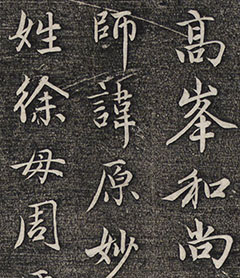 高峯和尚
師諱原妙
姓徐母周